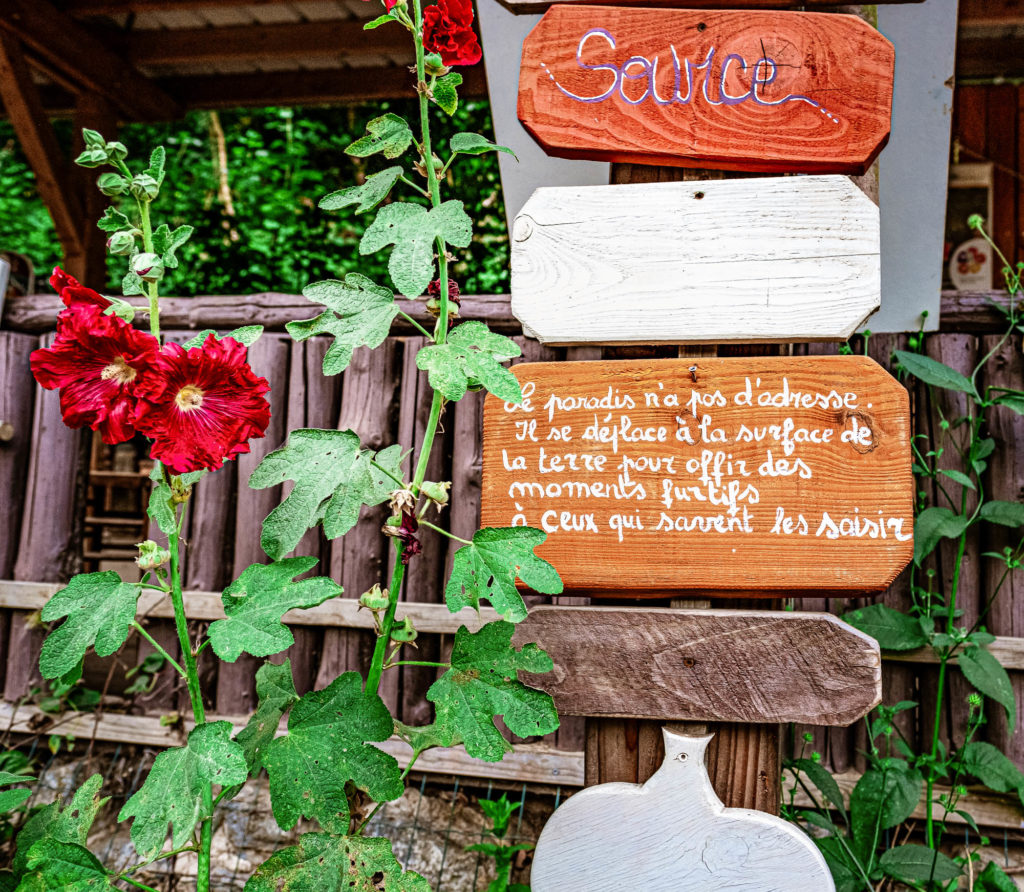 Source
Le paradis n'a pas d'adresse.
Il se déplace à la surface de
la terre pour offir des
moments furtifs
à ceux qui savent les saisir